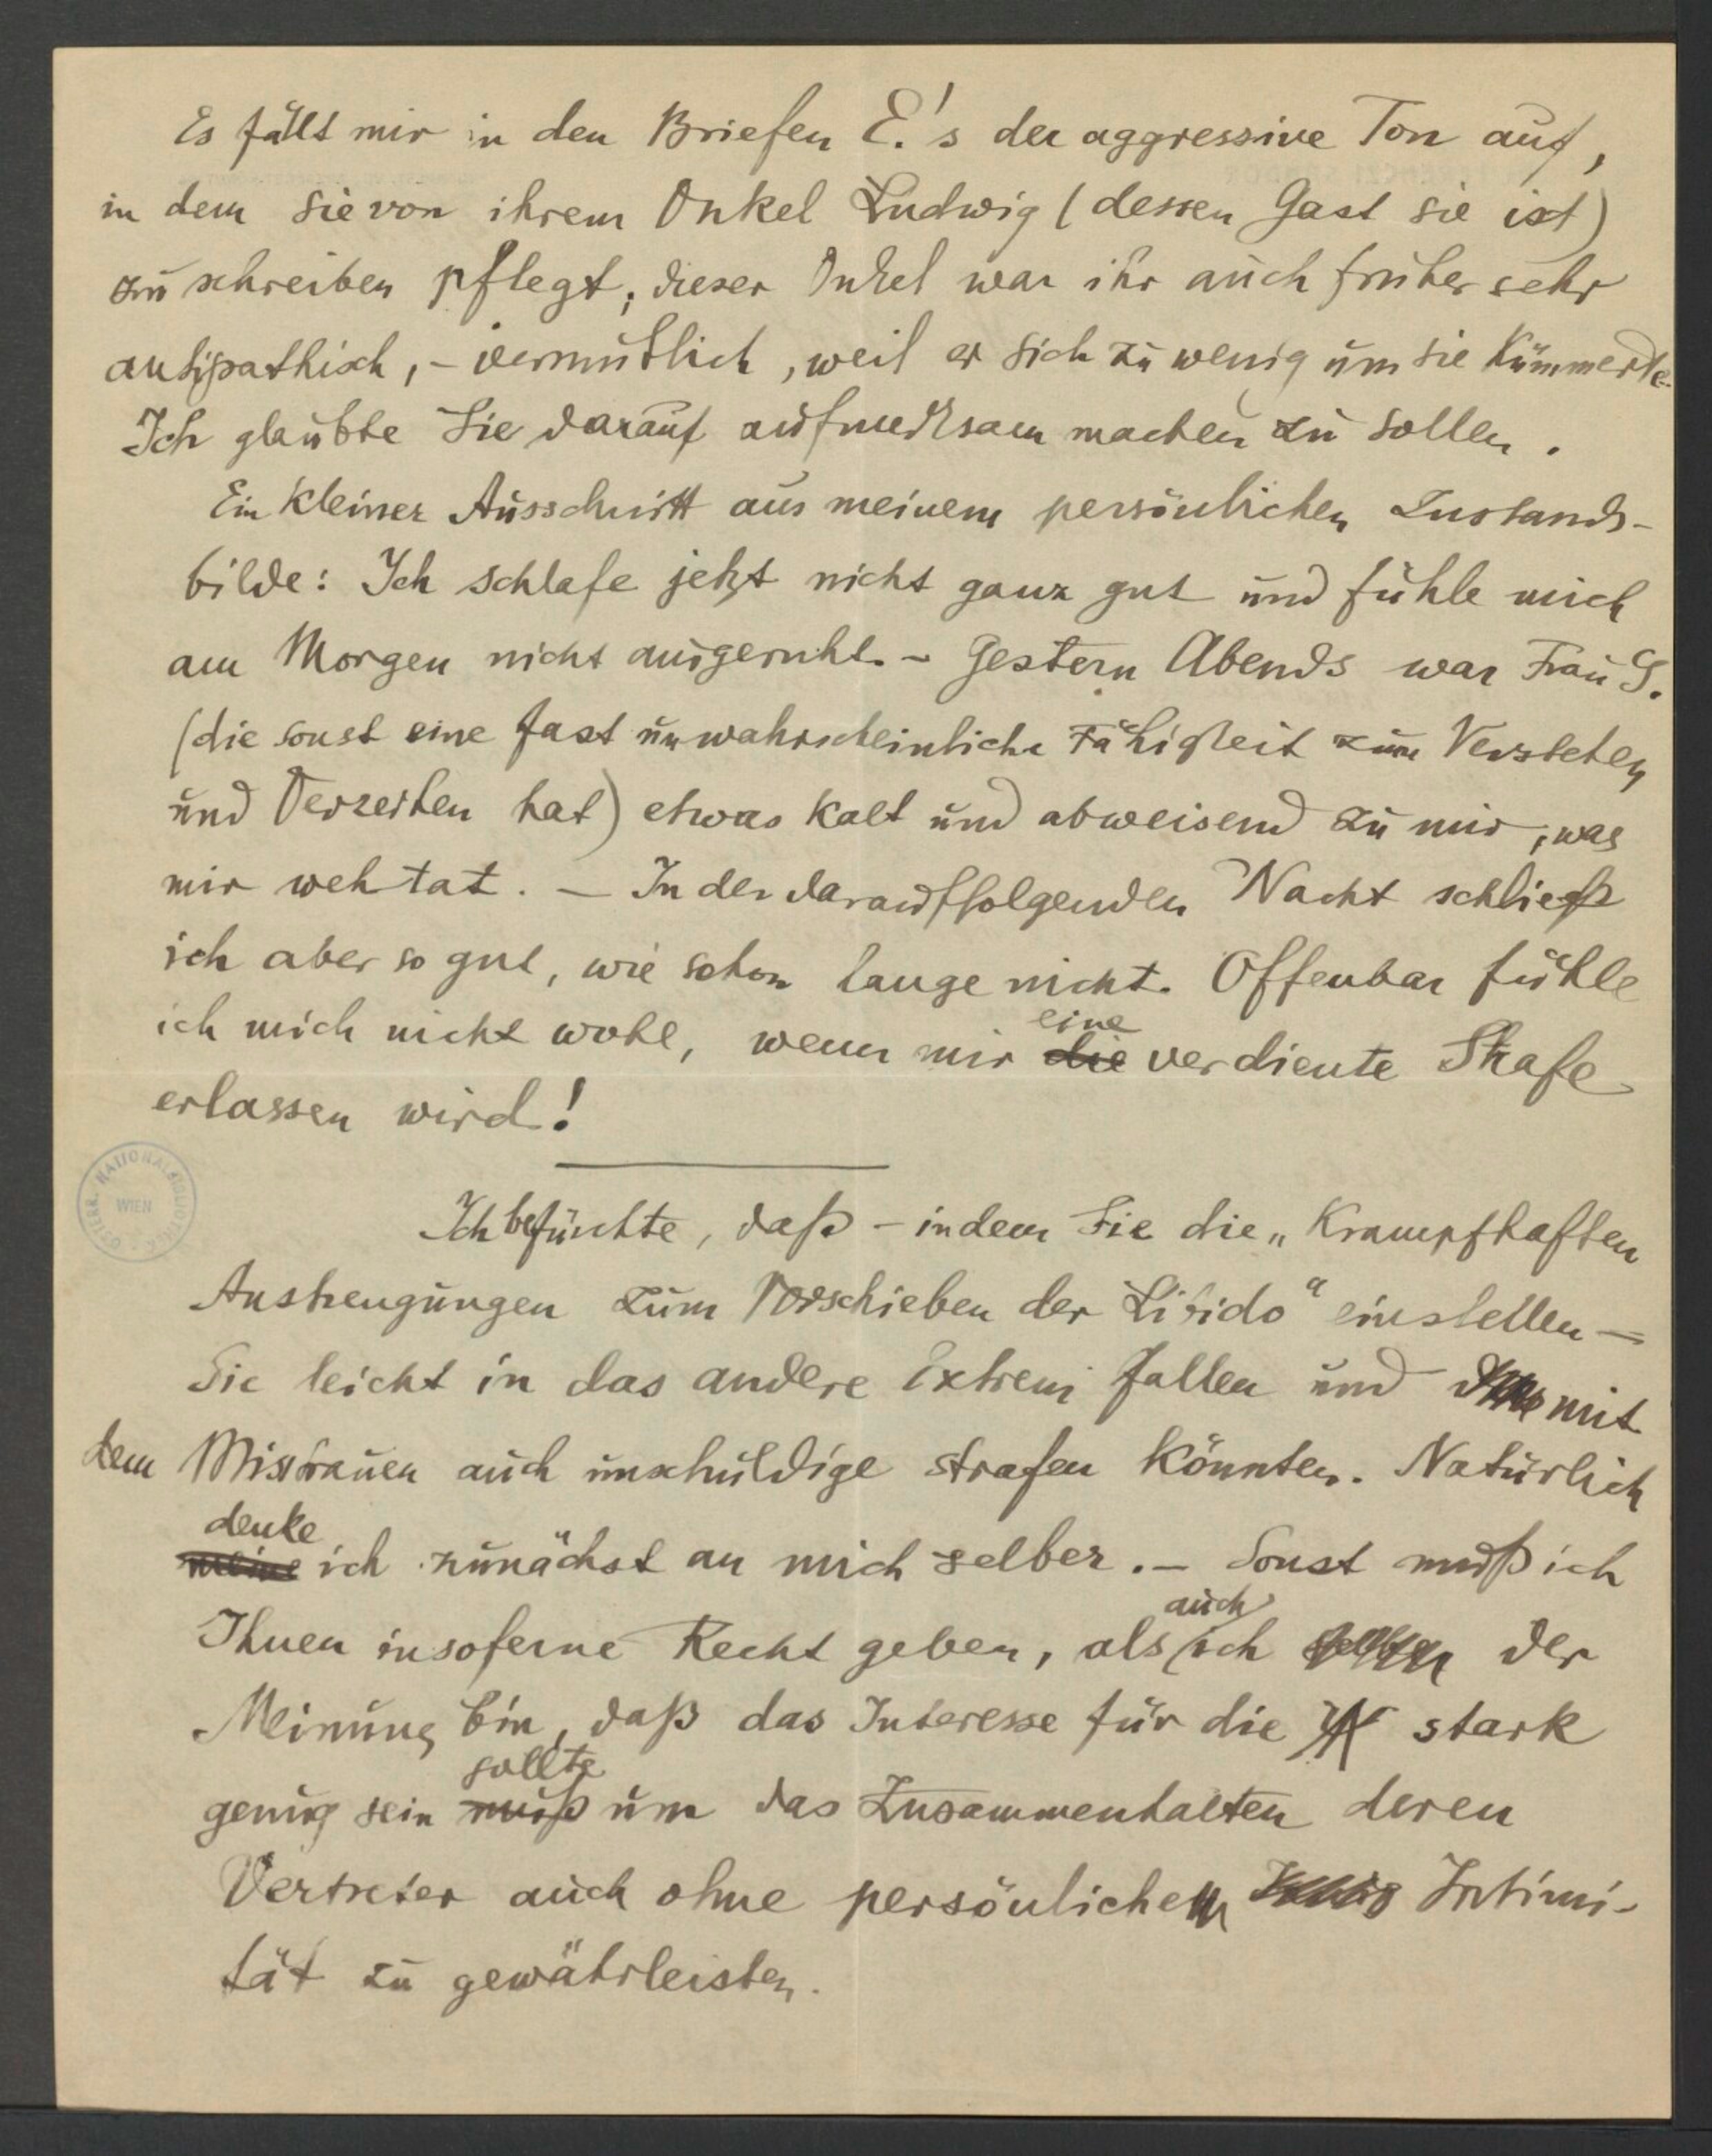 Es fällt mir in den Briefen E.'s der aggressive Ton auf,
in dem sie von ihrem Onkel Ludwig (dessen Gast sie ist)
zu schreiben pflegt; dieser Onkel war ihr auch früher sehr
antipathisch, – vermutlich, weil er sich zu wenig um sie kümmerte.
Ich glaubte Sie darauf aufmerksam machen zu sollen.
Ein kleiner Ausschnitt aus meinem persönlichen Zustands-
bilde: Ich schlafe jetzt nicht ganz gut und fühle mich
am Morgen nicht ausgeruht. – Gestern Abends war Frau G.
(die sonst eine fast unwahrscheinliche Fähigkeit zum Verstehen
und Verzeihen hat) etwas kalt und abweisend zu mir, was
mir weh tat. – In der darauffolgenden Nacht schlief
ich aber so gut, wie schon lange nicht. Offenbar fühle
ich mich nicht wohl, wenn mir die eine verdiente Strafe
erlassen wird!
ÖSTERR. NATIONALBIBLIOTHEK WIEN
Ich befürchte, daß – indem Sie die „Krampfhaften
Anstrengungen zum Vorschieben der Libido“ einstellen –
Sie leicht in das andere Extrem fallen und mit
dem Misstrauen auch unschuldige strafen könnten. Natürlich
meine denke ich zunächst an mich selber. – Sonst muß ich
Ihnen insoferne Recht geben, als auch ich der
Meinung bin, daß das Interesse für die ΨΑ stark
genug sein muß sollte um das Zusammenhalten deren
Vertreter auch ohne persönliche Intimi-
tät zu gewährleisten.